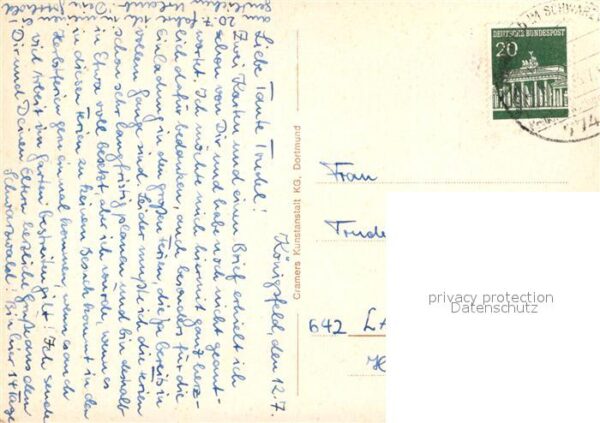 Königsfeld, den 12.7.
Liebe Tante Trudel!
Zwei Karten und einen Brief erhielt ich
schon von Dir und habe noch nicht geant-
wortet. Ich möchte mich hiermit ganz herz-
lich dafür bedanken, auch besonders für die
Einladung in den großen Ferien, die ja bereits in
vollem Gang sind. Leider mußte ich die Ferien
schon sehr langfristig planen und bin deshalb
in Etwa voll besetzt, aber ich würde, wenn es
in diesen Ferien zu keinem Besuch kommt in den
Herbstferien gern einmal kommen, wenn es auch
viel Arbeit im Garten bestreiten gilt! Ich sende
Dir und Deinen Eltern herzliche Grüße aus dem
Schwarzwald! Bin hier 14 Tage
20.7.
Cramers Kunstanstalt KG, Dortmund
DEUTSCHE BUNDESPOST
20
IM SCHWARZ
774
Frau
Trude
642 LA
privacy protection
Datenschutz